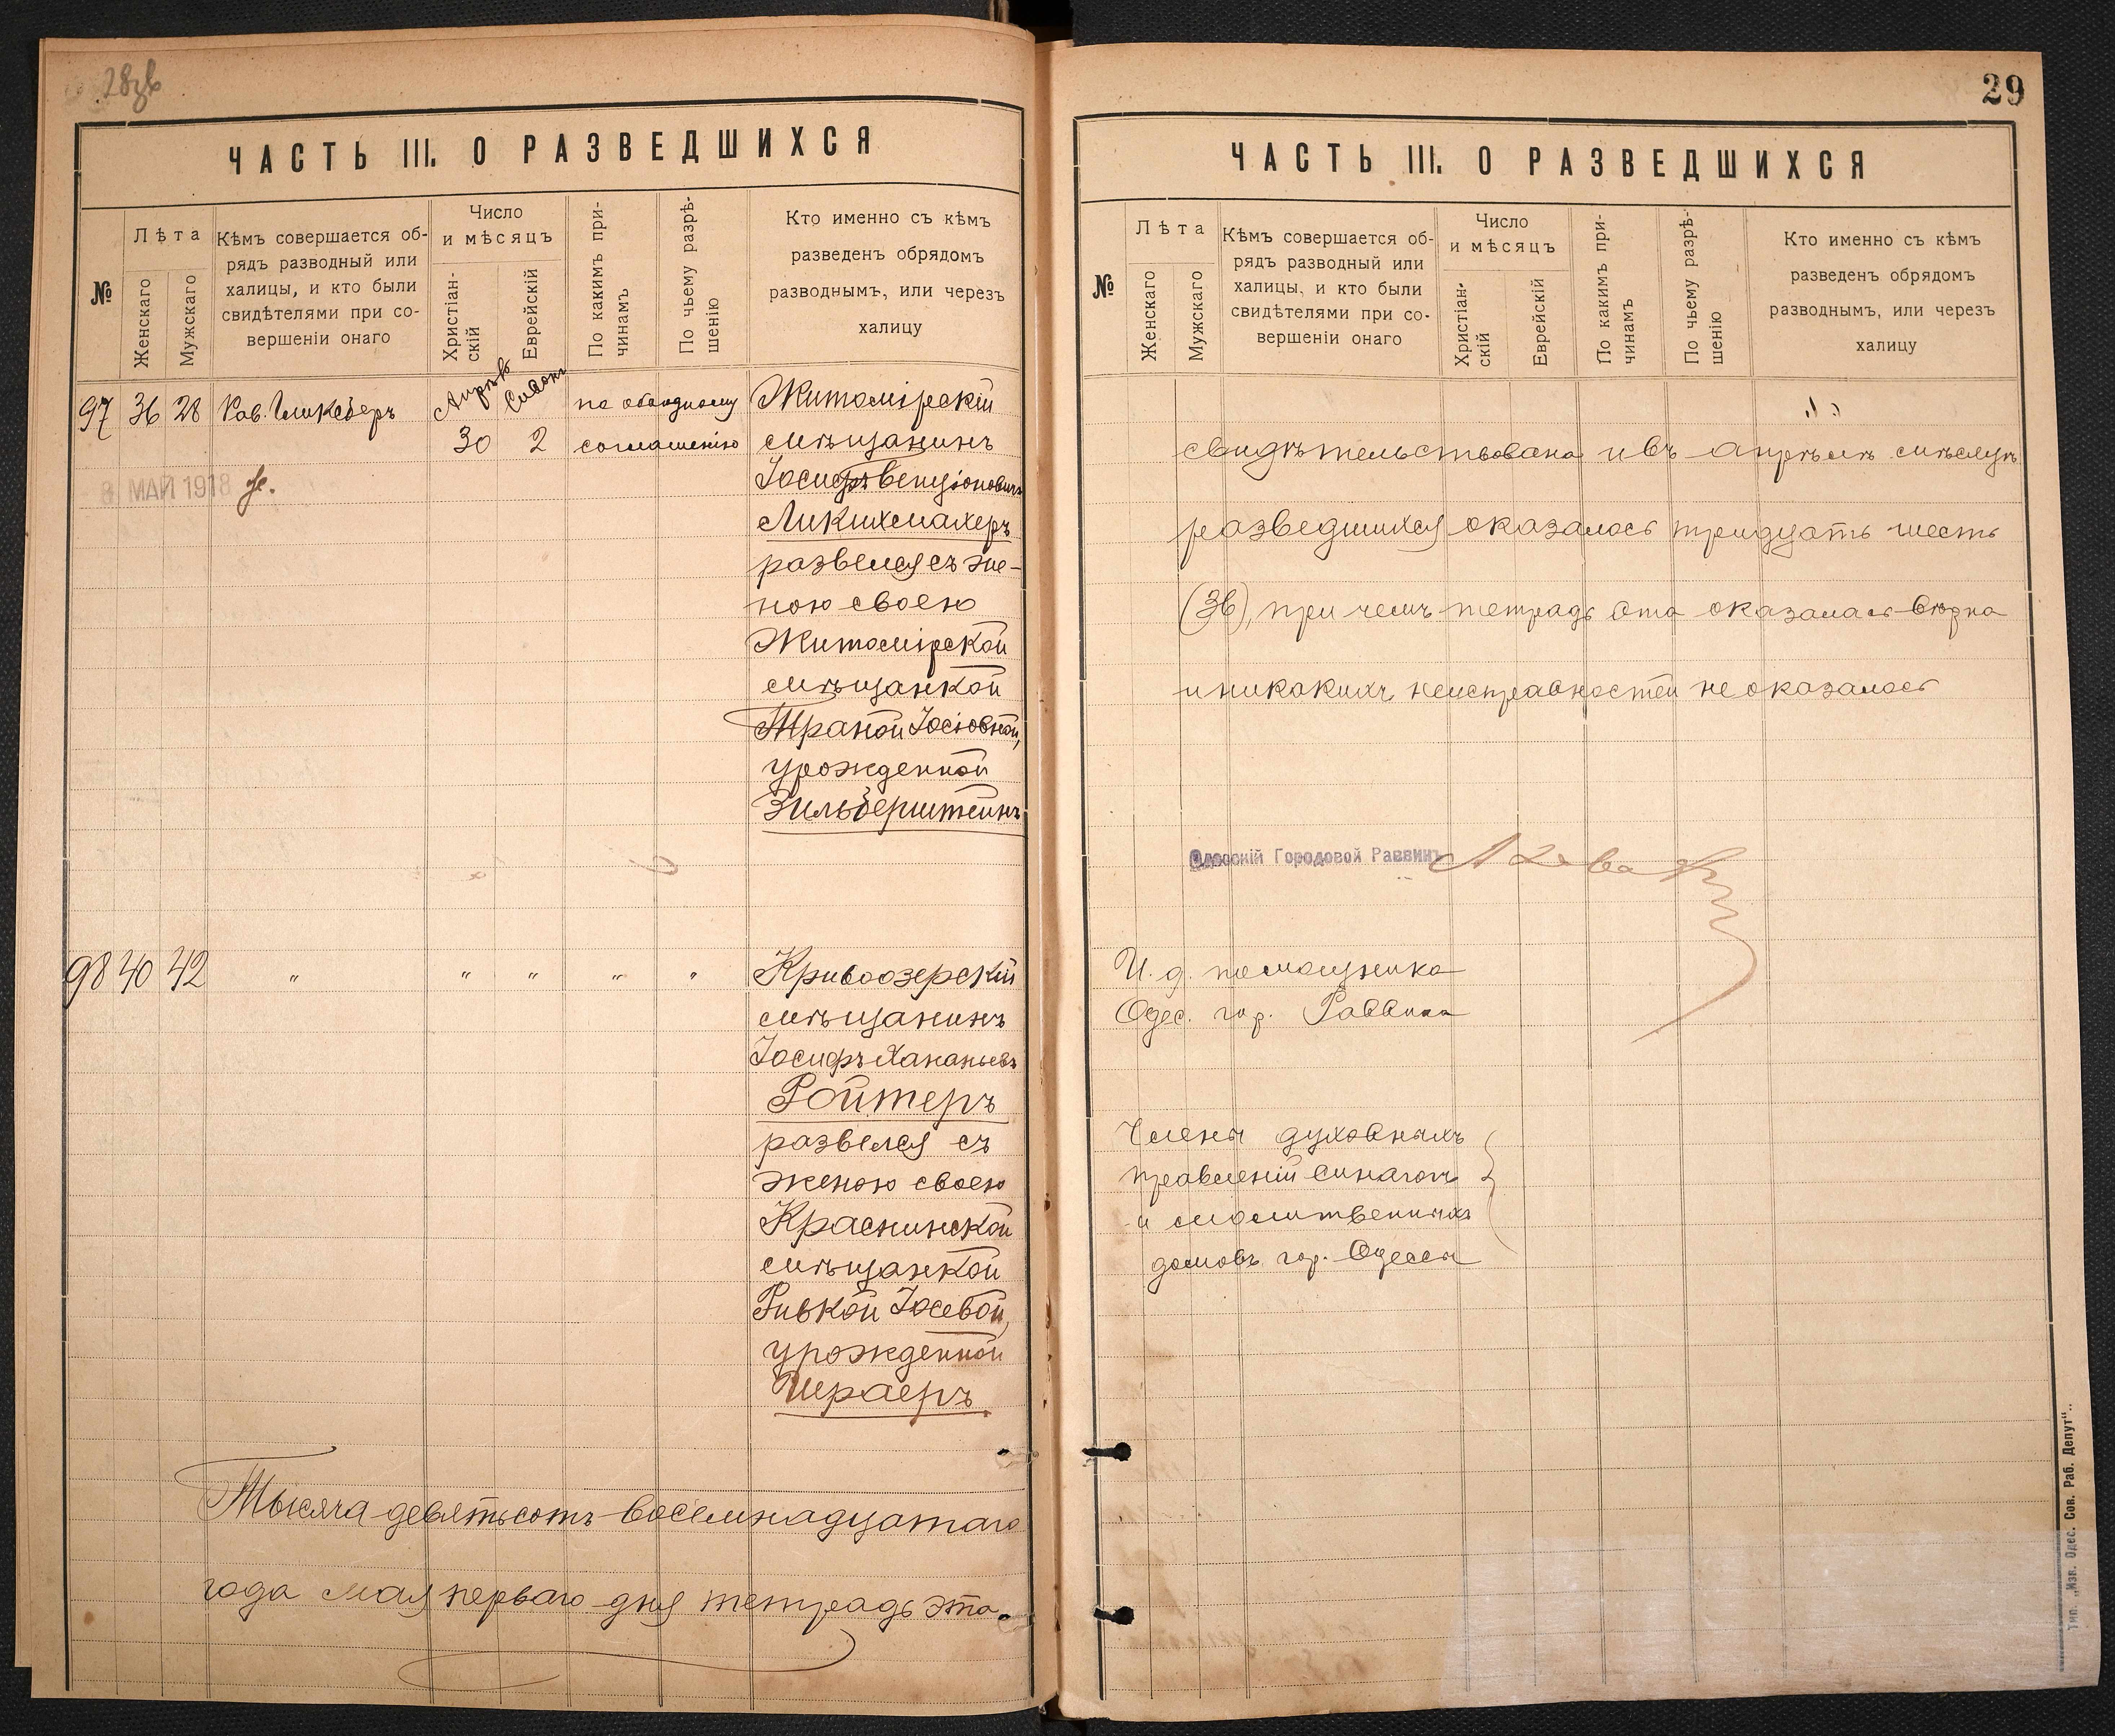 28 зв
ЧАСТЬ III. О РАЗВЕДШИХСЯ
№
Лѣта
Женскаго
Мужскаго
Кѣмъ совершается об-
рядъ разводный или
халицы, и кто были
свидѣтелями при со-
вершеніи онаго
Число
и мѣсяцъ
Христіан-
скій
Еврейскій
По какимъ при-
чинамъ
По чьему разрѣ-
шенію
Кто именно съ кѣмъ
разведенъ обрядомъ
разводнымъ, или черезъ
халицу
97 36 28 Рав. Гликсберъ Апрѣль Сивонъ по обоюдному Житомірскій
30 2 соглашенію мѣщанинъ
8 МАЙ 1918
Іосифъ Бенціоновичъ
Ликихмахеръ
развелся съ же-
ною своею
Житомірской
мѣщанкой
Траной Іосіовной,
урожденной
Зильберштейнъ
98 40 42 " " " " " Кривоозерскій
мѣщанинъ
Іосифъ Хананьевъ
Ройтеръ
развелся съ
женою своею
Краснинской
мѣщанкой
Ривкой Іосевой,
урожденной
Шраеръ
Тысяча девятьсотъ восемнадцатаго
года мая перваго дня тетрадь эта
29
ЧАСТЬ III. О РАЗВЕДШИХСЯ
№
Лѣта
Женскаго
Мужскаго
Кѣмъ совершается об-
рядъ разводный или
халицы, и кто были
свидѣтелями при со-
вершеніи онаго
Число
и мѣсяцъ
Христіан-
скій
Еврейскій
По какимъ при-
чинамъ
По чьему разрѣ-
шенію
Кто именно съ кѣмъ
разведенъ обрядомъ
разводнымъ, или черезъ
халицу
свидѣтельствована и въ апрѣлѣ мѣсяцѣ
разведшихся оказалось тридцать шесть
(36), при чемъ тетрадь эта оказалась вѣрна
и никакихъ неисправностей не оказалось
Одесскій Городовой Раввинъ
И. д. помощника
Одес. гор. Раввина
Члены духовныхъ
правленій синагогъ
и молитвенныхъ
домовъ гор. Одессы
Тип. „Изв. Одес. Сов. Раб. Депут“..